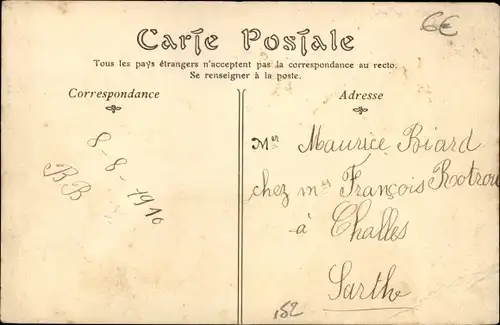 6€
Carte Postale
Tous les pays étrangers n'acceptent pas la correspondance au recto.
Se renseigner à la poste.
Correspondance
Adresse
8-8-1910
BB
Mr Maurice Biard
chez mr François Rotrou
à Challes
Sarthe
152